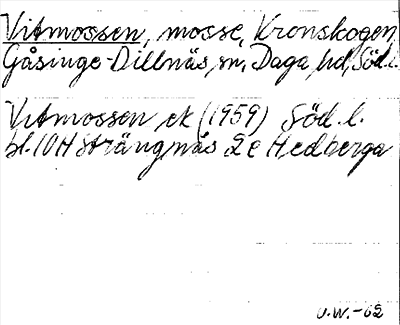 Vitmossen, mosse, Kronskogen,
Gåsinge-Dillnäs sn, Daga hd, Söd. l.
Vitmossen ek (1959) Söd. l.
bl. 10H Strängnäs 2e Hedberga
U.W.-62